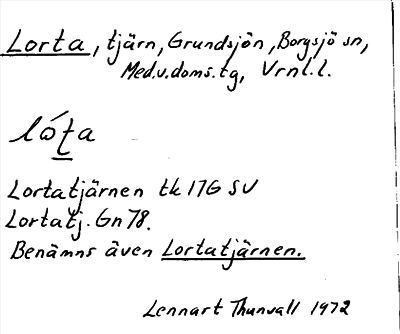 Lorta, tjärn, Grundsjön, Borgsjö sn,
Med.v.doms.tg, Vrnl.l.
lώṯa
Lortatjärnen tk 17G SV
Lortatj. Gn 78.
Benämns även Lortatjärnen.
Lennart Thunvall 1972